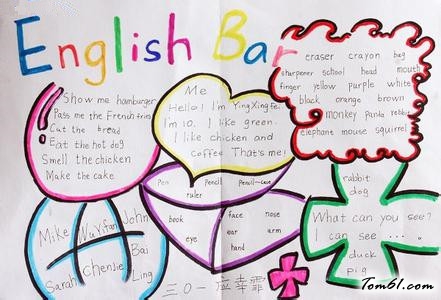 English Bar
Show me hamburger
Pass me the French fries
Cut the bread
Eat the hot dog
Smell the chicken
Make the cake
Me
Hello! I'm YingXingfei
I'm 10. I like green.
I like chicken and
coffee That's me!
eraser crayon bag
sharpener school head mouth
finger yellow purple white
black orange brown
monkey panda rabbit
elephant mouse squirrel
Pen Pencil Pencil-case
ruler
book face nose
ear arm
eye hand
Mike WuYifan John
Bai
Sarah ChenJie Ling
rabbit
dog
What can you see?
I can see ....
duck
pig
三〇一
Tom61.com